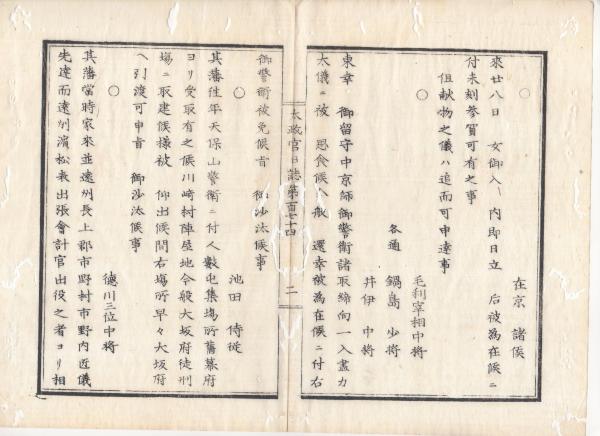 在京 諸侯
來廿八日 女御入ㇾ內即日立 后被為在候ニ
付未刻參賀可有之事
但献物之儀ハ追而可申達事
○
毛利宰相中将
各通 鍋島 少将
井伊 中将
東幸 御留守中京師御警衛諸取締向一入盡力
太儀ニ被 思食候今般 還幸被為在候ニ付右
太政官日誌第百七十四
二
御警衛被免候旨 御沙汰候事
○
池田 侍従
其藩往年天保山警衛ニ付人數屯集場所舊幕府
ヨリ受取有之候川崎村陣屋地今般大坂府徒刑
場ニ取建候様被 仰出候間右場所早々大坂府
ヘ引渡可申旨 御沙汰候事
○
德川三位中将
其藩當時家來並遠州長上郡市野村市野内近儀
先達而遠州濱松表出張會計官出役之者ヨリ相